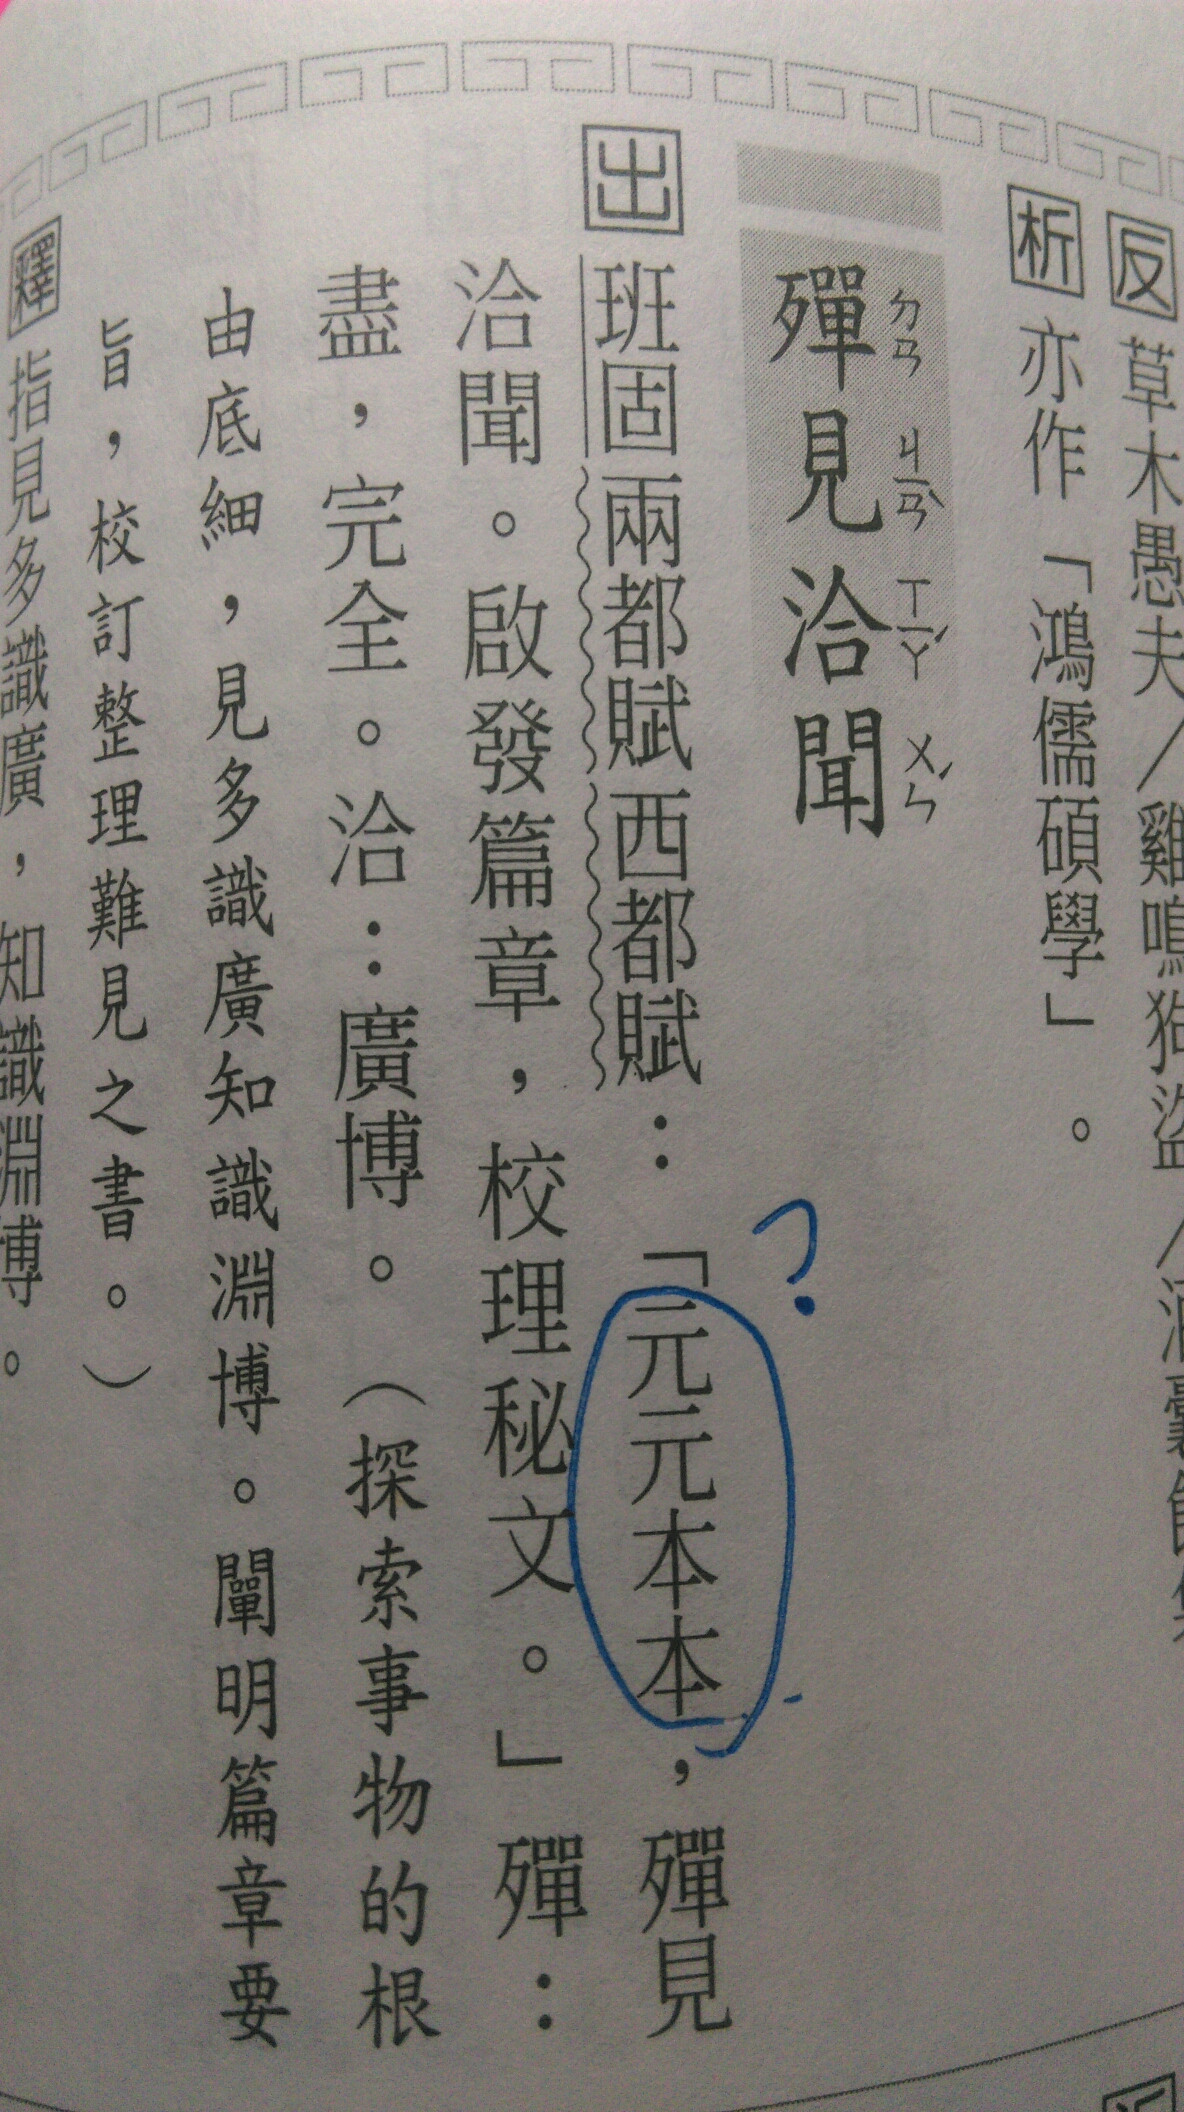 反 草木愚夫／雞鳴狗盜／酒囊飯
析 亦作「鴻儒碩學」。
殫見洽聞
ㄉㄢ ㄐㄧㄢˋ ㄒㄧㄚˊ ㄨㄣˊ
出 班固兩都賦西都賦：「元元本本，殫見
洽聞。啟發篇章，校理秘文。」殫：
盡，完全。洽：廣博。（探索事物的根
由底細，見多識廣知識淵博。闡明篇章要
旨，校訂整理難見之書。）
釋 指見多識廣，知識淵博。
?